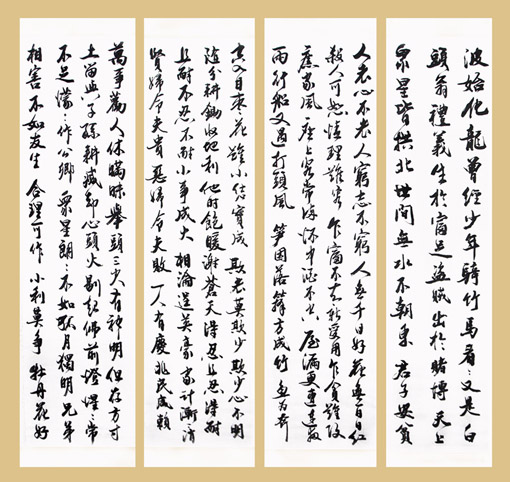 萬事勸人休瞞昧舉頭三尺有神明但存方寸
土留與子孫耕滅卻心頭火剔起佛前燈惺々常
不足懞々作公卿眾星朗々不如孤月獨明兄弟
相害不如友生合理可作小利莫爭牡丹花好
空入目棗花雖小結實成欺老莫欺少欺少心不明
隨分耕鋤收地利他時飽暖謝蒼天得忍且忍得耐
且耐不忍不耐小事成大相論逞英豪家計漸々消
賢婦令夫貴惡婦令夫敗一人有慶兆民咸賴
人老心不老人窮志不窮人無千日好花無百日紅
殺人可恕情理難容乍富不知新受用乍貧難改
舊家風座上客常滿杯中酒不空屋漏更遭連夜
雨行船又遇打頭風笋因落籜方成竹魚為奔
波始化龍曾經少年騎竹馬看々又是白
頭翁禮義生於富足盜賊出於賭博天上
眾星皆拱北世間無水不朝東君子安貧